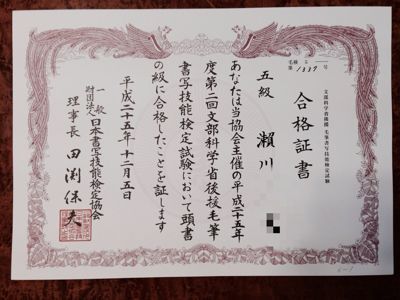 毛検 5
第 1339 号
文部科学省後援 毛筆書写技能検定試験
合格証書
五級 瀬川
あなたは当協会主催の平成二十五年
度第二回文部科学省後援毛筆
書写技能検定試験において頭書
の級に合格したことを証します
平成二十五年十二月五日
一般
財団法人 日本書写技能検定協会
理事長 田渕保夫